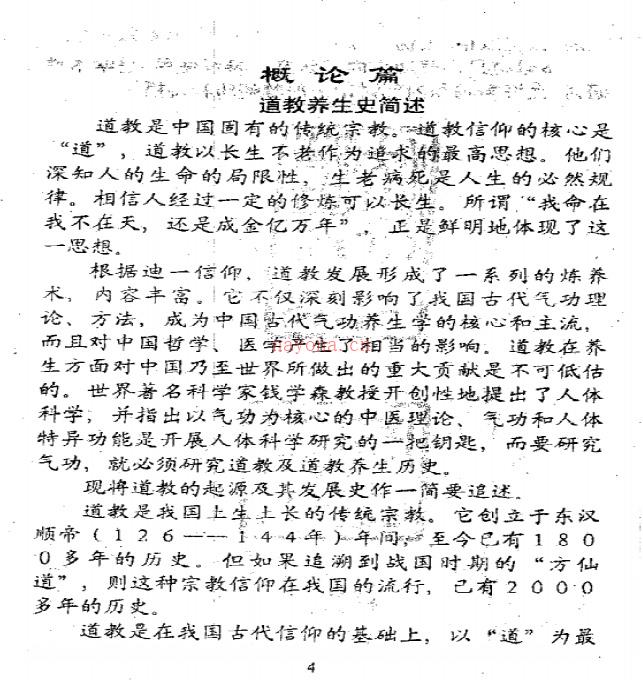 概论篇
道教养生史简述
道教是中国固有的传统宗教。道教信仰的核心是
“道”，道教以长生不老作为追求的最高思想。他们
深知人的生命的局限性，生老病死是人生的必然规
律。相信人经过一定的修炼可以长生。所谓“我命在
我不在天，还是成金亿万年”，正是鲜明地体现了这
一思想。
根据迪一信仰、道教发展形成了一系列的炼养
术，内容丰富。它不仅深刻影响了我国古代气功理
论、方法，成为中国古代气功养生学的核心和主流，
而且对中国哲学、医学产生了相当的影响。道教在养
生方面对中国乃至世界所做出的重大贡献是不可低估
的。世界著名科学家钱学森教授开创性地提出了人体
科学，并指出以气功为核心的中医理论、气功和人体
特异功能是开展人体科学研究的一把钥匙，而要研究
气功，就必须研究道教及道教养生历史。
现将道教的起源及其发展史作一简要追述。
道教是我国土生土长的传统宗教。它创立于东汉
顺帝（126——144年）年间，至今已有180
0多年的历史。但如果追溯到战国时期的“方仙
道”，则这种宗教信仰在我国的流行，已有2000
多年的历史。
道教是在我国古代信仰的基础上，以“道”为最
4